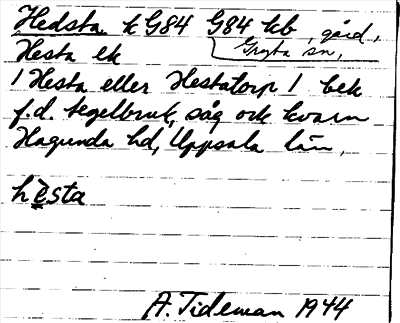 Hedsta k G84 G84 kb, gård,
Gryta sn,
Hesta ek
1 Hesta eller Hestatorp 1 bek
f.d. tegelbruk, såg och kvarn
Hagunda hd, Uppsala län,
hèsta
A. Tideman 1944